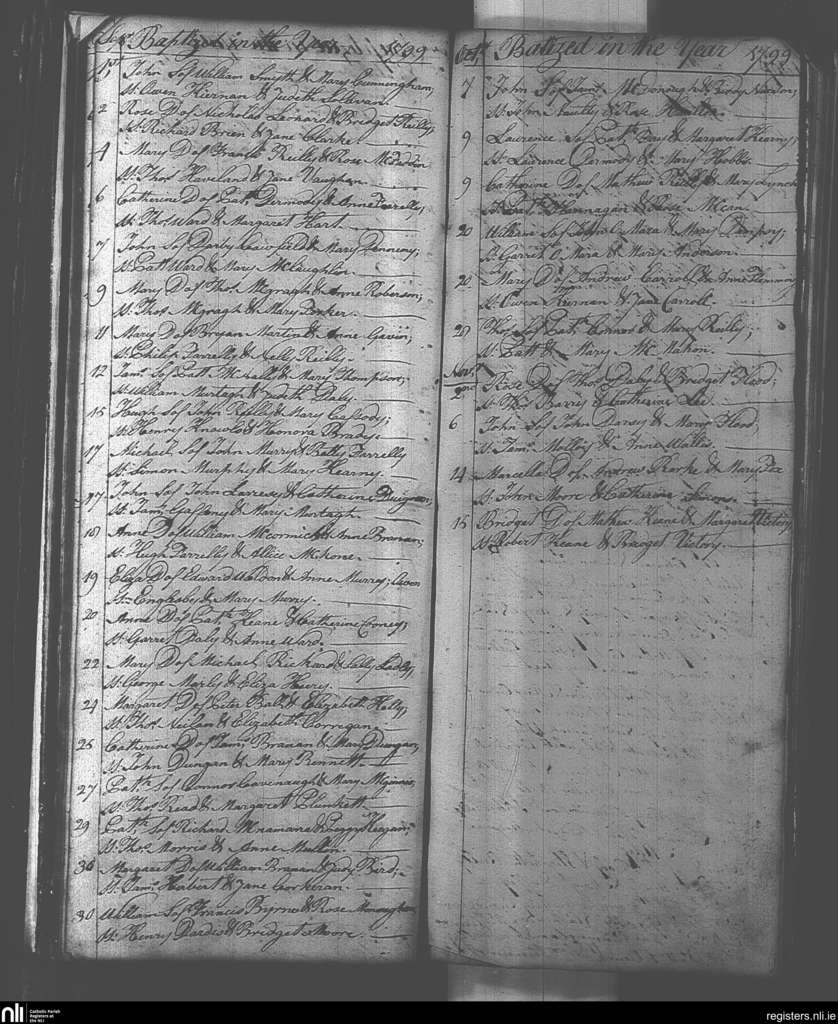 Sepr Baptized in the Year 1799
1st John S of William Smyth & Mary Cunningham,
St. Owen Kiernan & Judith Sullivan.
2 Rose D of Nicholas Leonard & Bridget Reilly,
St. Richard Brien & Jane Clarke
4 Mary D of Francis Reilly & Rose
St. Thos Haveland & Jane Vaughan.
6 Catherine D of Patk Dermody & Anne Farrelly
St. Thos. Ward & Margaret Hart.
7 John S of Darby & Mary
St. Patt Ward & Mary McLaughlin.
9 Mary D of Thos Mcgragh & Anne Roberson;
St. Thos Mcgragh & Mary
11 Mary D of Bryan Martin & Anne Gavin;
St. Philip Farrelly & Nelly Reilly.
12 Jams. S of Patt McNally & Mary Thompson;
St. William Murtagh & Judith Daly.
15 Hugh S of John Reilly & Mary Cassody;
St. Henry & Honora Brady.
17 Michael S of John Murry & Betty Farrelly
St. Simon Murphy & Mary Kearny.
17 John S of John & Catherine Duignan;
St. Jams Gaffany & Mary Murtagh.
18 Anne D of William Mccormick & Anne Branan;
St. Hugh Farrelly & Allice
19 Eliza D of Edward Weldon & Anne Murry;
St. & Mary Murry.
20 Anne D of Patk Keane & Catherine Cooney;
St. Garret Daly & Anne Ward.
22 Mary D of Michael & Nelly
St. George & Eliza
24 Margaret D of Peter & Elizabeth Kelly;
St. Thos Neilan & Elizabeth Corregan.
25 Catherine D of Jams Branan & Mary Dungan,
St. John Dungan & Mary Kennett
27 Patk S of Connor Cavenaugh & Mary Mcginnis;
St. Thos Read & Margaret Plunkett
29 Patk S of Richard Mcnamara & Peggy Keegan;
St. Thos. Morris & Anne
30 Margaret D of William Branan & Judy Bird;
St. Jams. Harbert & Jane Corkeran.
30 William S of Francis Byrne & Rose
St. Henry Dardis & Bridget Moore.
Octr Batized in the Year 1799
7 John S of Jams McDonough &
St. John & Rose Hamilton.
9 Laurence S of Patk Fay & Margaret Kearny;
St. Laurence Dermody & Mary Hobbs.
9 Catherine D of Mathew Reilly & Mary Lynch
St. Patk Flannagan & Rose McCann
20 William S of Mara & Mary Dempsy;
St. Garret O Mara & Mary Anderson.
20 Mary D of Andrew Carroll & Anne Flemming
St. Owen Kiernan & Jane Carroll.
27 Thos S of Patk Connor & Mary Reilly;
St. Patt & Mary McMahon.
Novr
2nd Rose D of Thos Daly & Bridget Flood;
St. Thos Davis & Catherine Lee.
6 John S of John Darcy & Mary Flood,
St. Jams. Molloy & Anne Wallis.
14 Marcella D of Andrew Rorke & Mary Fox
St. John Moore & Catherine
15 Bridget D of Mathew Keane & Margaret Victory
St. Robert Keane & Bridget Victory.
nli
Catholic Parish
Registers at
the NLI
registers.nli.ie